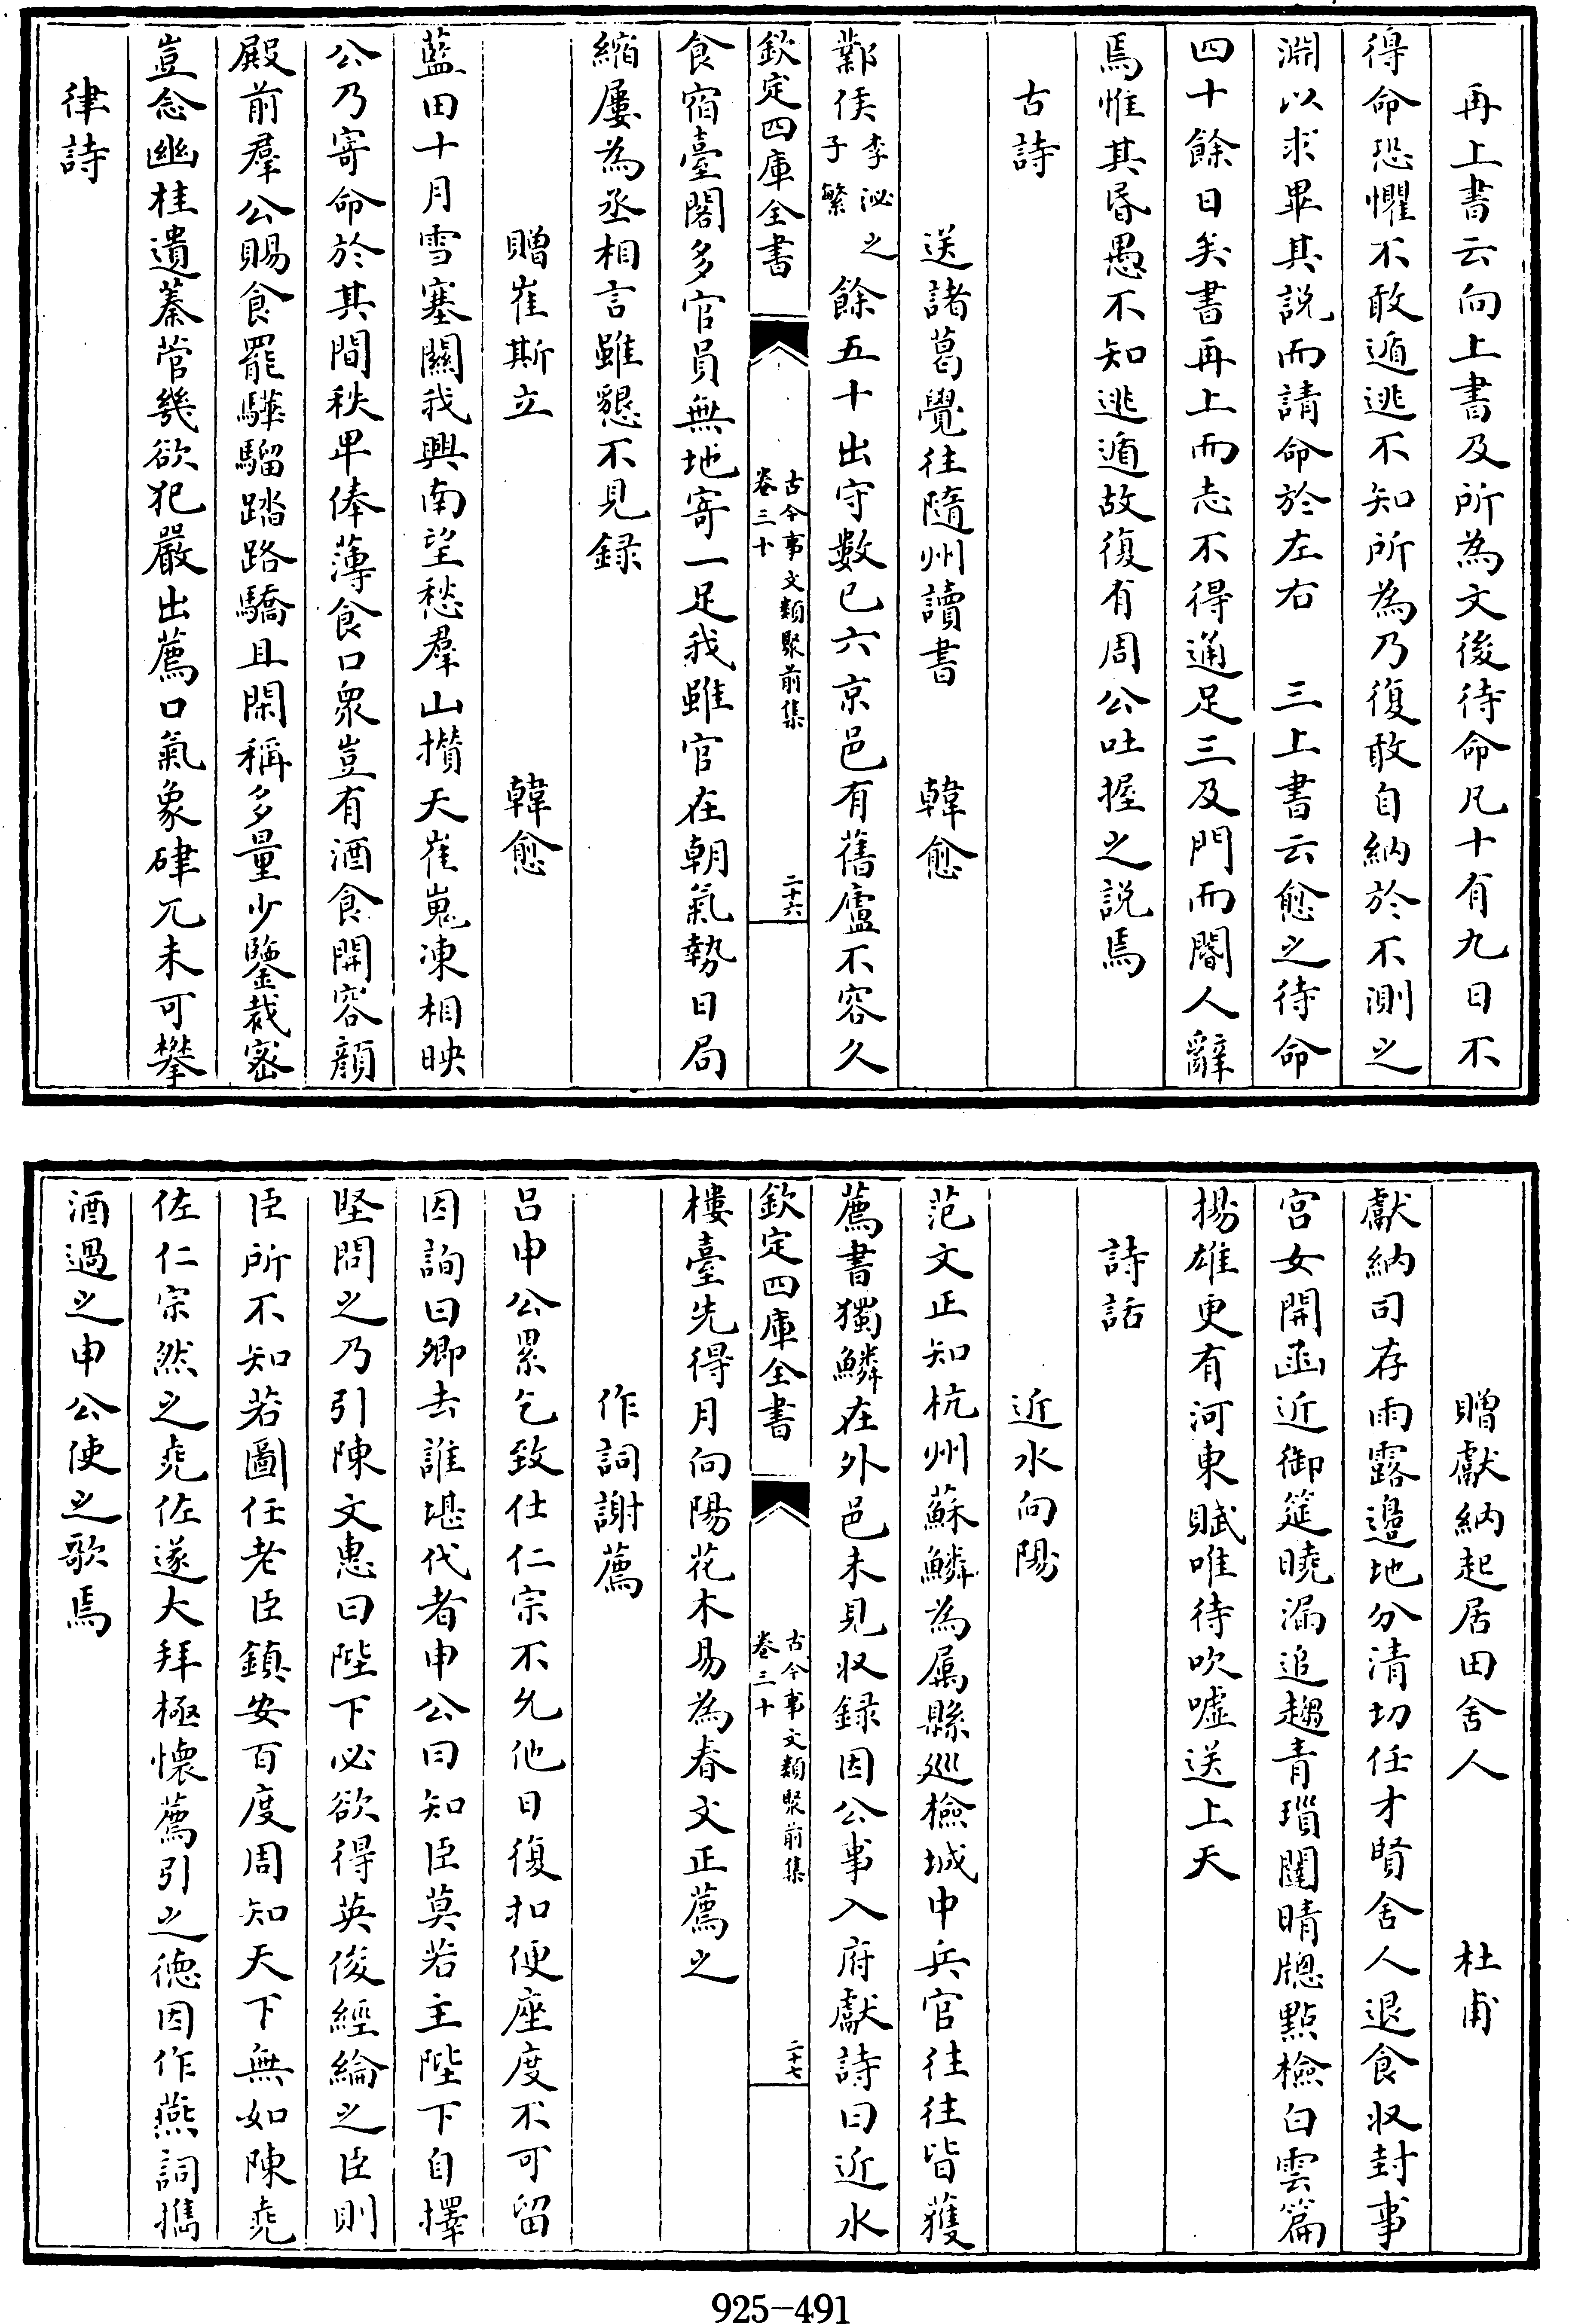 再上書云向上書及所為文後待命凡十有九日不
得命恐懼不敢遁逃不知所為乃復敢自納於不測之
淵以求畢其説而請命於左右　三上書云愈之待命
四十餘日矣書再上而志不得通足三及門而閽人辭
焉惟其昏愚不知逃遁故復有周公吐握之説焉
古詩
送諸葛覺往隨州讀書　韓愈
鄴侯李泌之子繁餘五十出守數已六京邑有舊廬不容久
欽定四庫全書
古今事文類聚前集
卷三十
二十六
食宿臺閣多官員無地寄一足我雖官在朝氣勢日局
縮屢為丞相言雖懇不見録
贈崔斯立　韓愈
藍田十月雪塞關我興南望愁羣山攢天嵬嵬凍相映
公乃寄命於其間秩卑俸薄食口衆豈有酒食開容顔
殿前羣公賜食罷驊騮踏路驕且閑稱多量少鑒裁密
豈念幽桂遺蓁菅幾欲犯嚴出薦口氣象硉兀未可攀
律詩
贈獻納起居田舍人　杜甫
獻納司存雨露邊地分清切任才賢舍人退食收封事
宫女開函近御筵曉漏追趨青瑣闥晴牕點檢白雲篇
揚雄更有河東賦唯待吹噓送上天
詩話
近水向陽
范文正知杭州蘇鱗為屬縣廵檢城中兵官往往皆獲
薦書獨鱗在外邑未見收録因公事入府獻詩曰近水
欽定四庫全書
古今事文類聚前集
卷三十
二十七
樓臺先得月向陽花木易為春文正薦之
作詞謝薦
吕申公累乞致仕仁宗不允他日復扣便座度不可留
因詢曰卿去誰堪代者申公曰知臣莫若主陛下自擇
堅問之乃引陳文惠曰陛下必欲得英俊經綸之臣則
臣所不知若圖任老臣鎮安百度周知天下無如陳堯
佐仁宗然之堯佐遂大拜極懷薦引之徳因作燕詞擕
酒過之申公使之歌焉
925-491